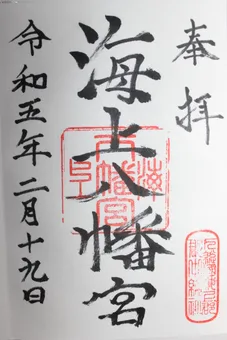 奉拝
海上八幡宮
令和五年二月十九日